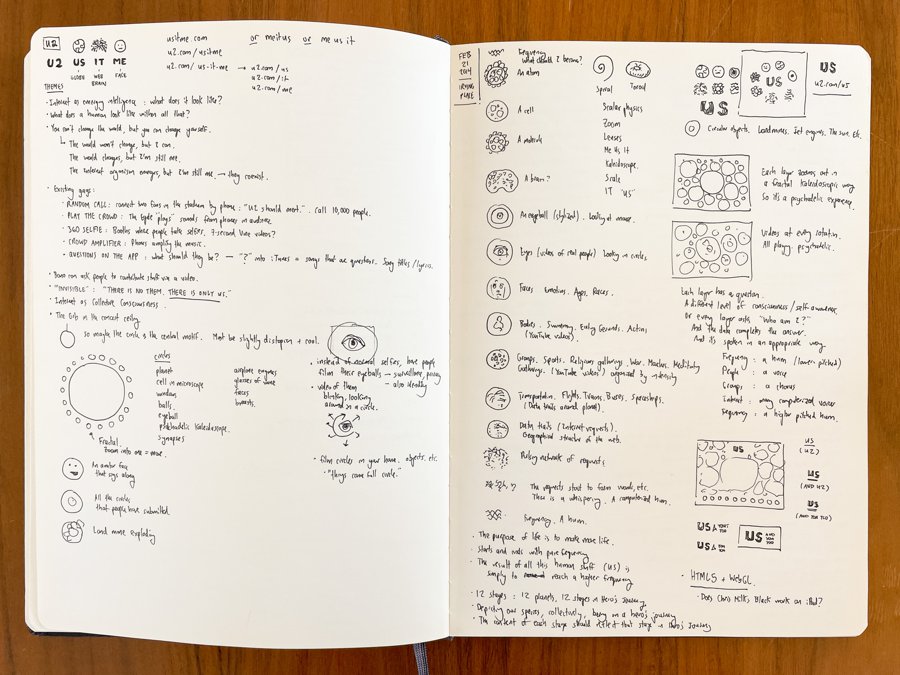 U2
U2 US IT ME
GLOBE WEB BRAIN FACE
usitme.com
u2.com/usitme
u2.com/us-it-me → u2.com/us
u2.com/it
u2.com/me
or meitus or me us it
THEMES
· Internet as emerging intelligence : what does it look like?
· What does a human look like within all that?
· You can't change the world, but you can change yourself.
↳ The world won't change, but I can.
The world changes, but I'm still me.
The internet organism emerges, but I'm still me. → they coexist.
· Existing gags:
· RANDOM CALL: connect two fans in the stadium by phone: "U2 should meet." Call 10,000 people.
· PLAY THE CROWD: The Edge "plays" sounds from phones in audience.
· 360 SELFIE: Booths where people take selfies. 7-second Vine videos?
· CROWD AMPLIFIER: Phones amplify the music.
· QUESTIONS ON THE APP: what should they be? → "?" into iTunes = songs that are questions. Song titles/lyrics.
· Bono can ask people to contribute stuff via a video.
· "INVISIBLE": "THERE IS NO THEM. THERE IS ONLY US."
· Internet as Collective Consciousness.
· The Orb in the concert ceiling
so maybe the circle is the central motif. Must be slightly dystopian + cool.
circles
planet
cell in microscope
windows
balls.
eyeball
psychedelic kaleidoscope.
synapses
airplane engines
glasses of wine
faces
breasts.
Fractal.
Zoom into one = more.
An avatar face
that sings along
All the circles
that people have submitted.
Land mine exploding
· instead of normal selfies, have people
film their eyeballs → surveillance, privacy
– also identity
· video of them
blinking, looking
around in a circle.
· film circles in your home. objects. etc.
· "things come full circle."
FEB
21
2014
IRVING
PLACE
Frequency
What should I become?
An atom
A cell
A molecule
A brain?
An eyeball (stylized). Looking at mouse.
Eyes (videos of real people) Looking in circles.
Faces Emotions. Ages, Races.
Bodies. Swimming. Eating. Grounds. Actions
(YouTube videos).
Groups. Sports. Religious gatherings. War. Marches. Meditating
Gatherings. (YouTube videos) organized by intensity
Transportation. Flights, Trains, Buses. Spaceships.
(Data trails around planet).
Data trails (Internet requests).
Geographical structure of the nets.
Pulsing network of requests
The requests start to form words, etc.
There is a whispering. A computerized hum.
Frequency. A hum.
Spiral Toroid
Scalar physics
Zoom
Lenses
Me Us It
Kaleidoscope.
Scale
IT "US"
· The purpose of life is to make more life.
· Starts and ends with pure frequency
· The result of all this human stuff (US) is
simply to reach a higher frequency
· 12 stages: 12 planets, 12 stages in Hero's Journey
· Depicting our species, collectively, being on a hero's journey
· The content of each stage should reflect that stage in Hero's Journey
US
US
US
u2.com/us
Circular objects. Landmines. Jet engines. The sun. Etc.
Each layer zooms out in
a fractal kaleidoscopic way
So it's a psychedelic experience.
Videos at every rotation.
All playing. psychedelic.
Each layer has a question.
A different level of consciousness/self-awareness
Or every layer asks "Who am I?"
And the data completes the answer.
And it's spoken in an appropriate way
Frequency : a hum (lower pitched)
People : a voice
Groups : a chorus
Internet : many computerized voices
Frequency : a higher pitched hum.
US
US
(U2)
US
(AND U2)
US
(AND YOU TOO)
US & YOU TOO
US & YOU TOO
US AND YOU TOO
· HTML5 + WebGL.
· Does Chris Milk's Black work on iPad?